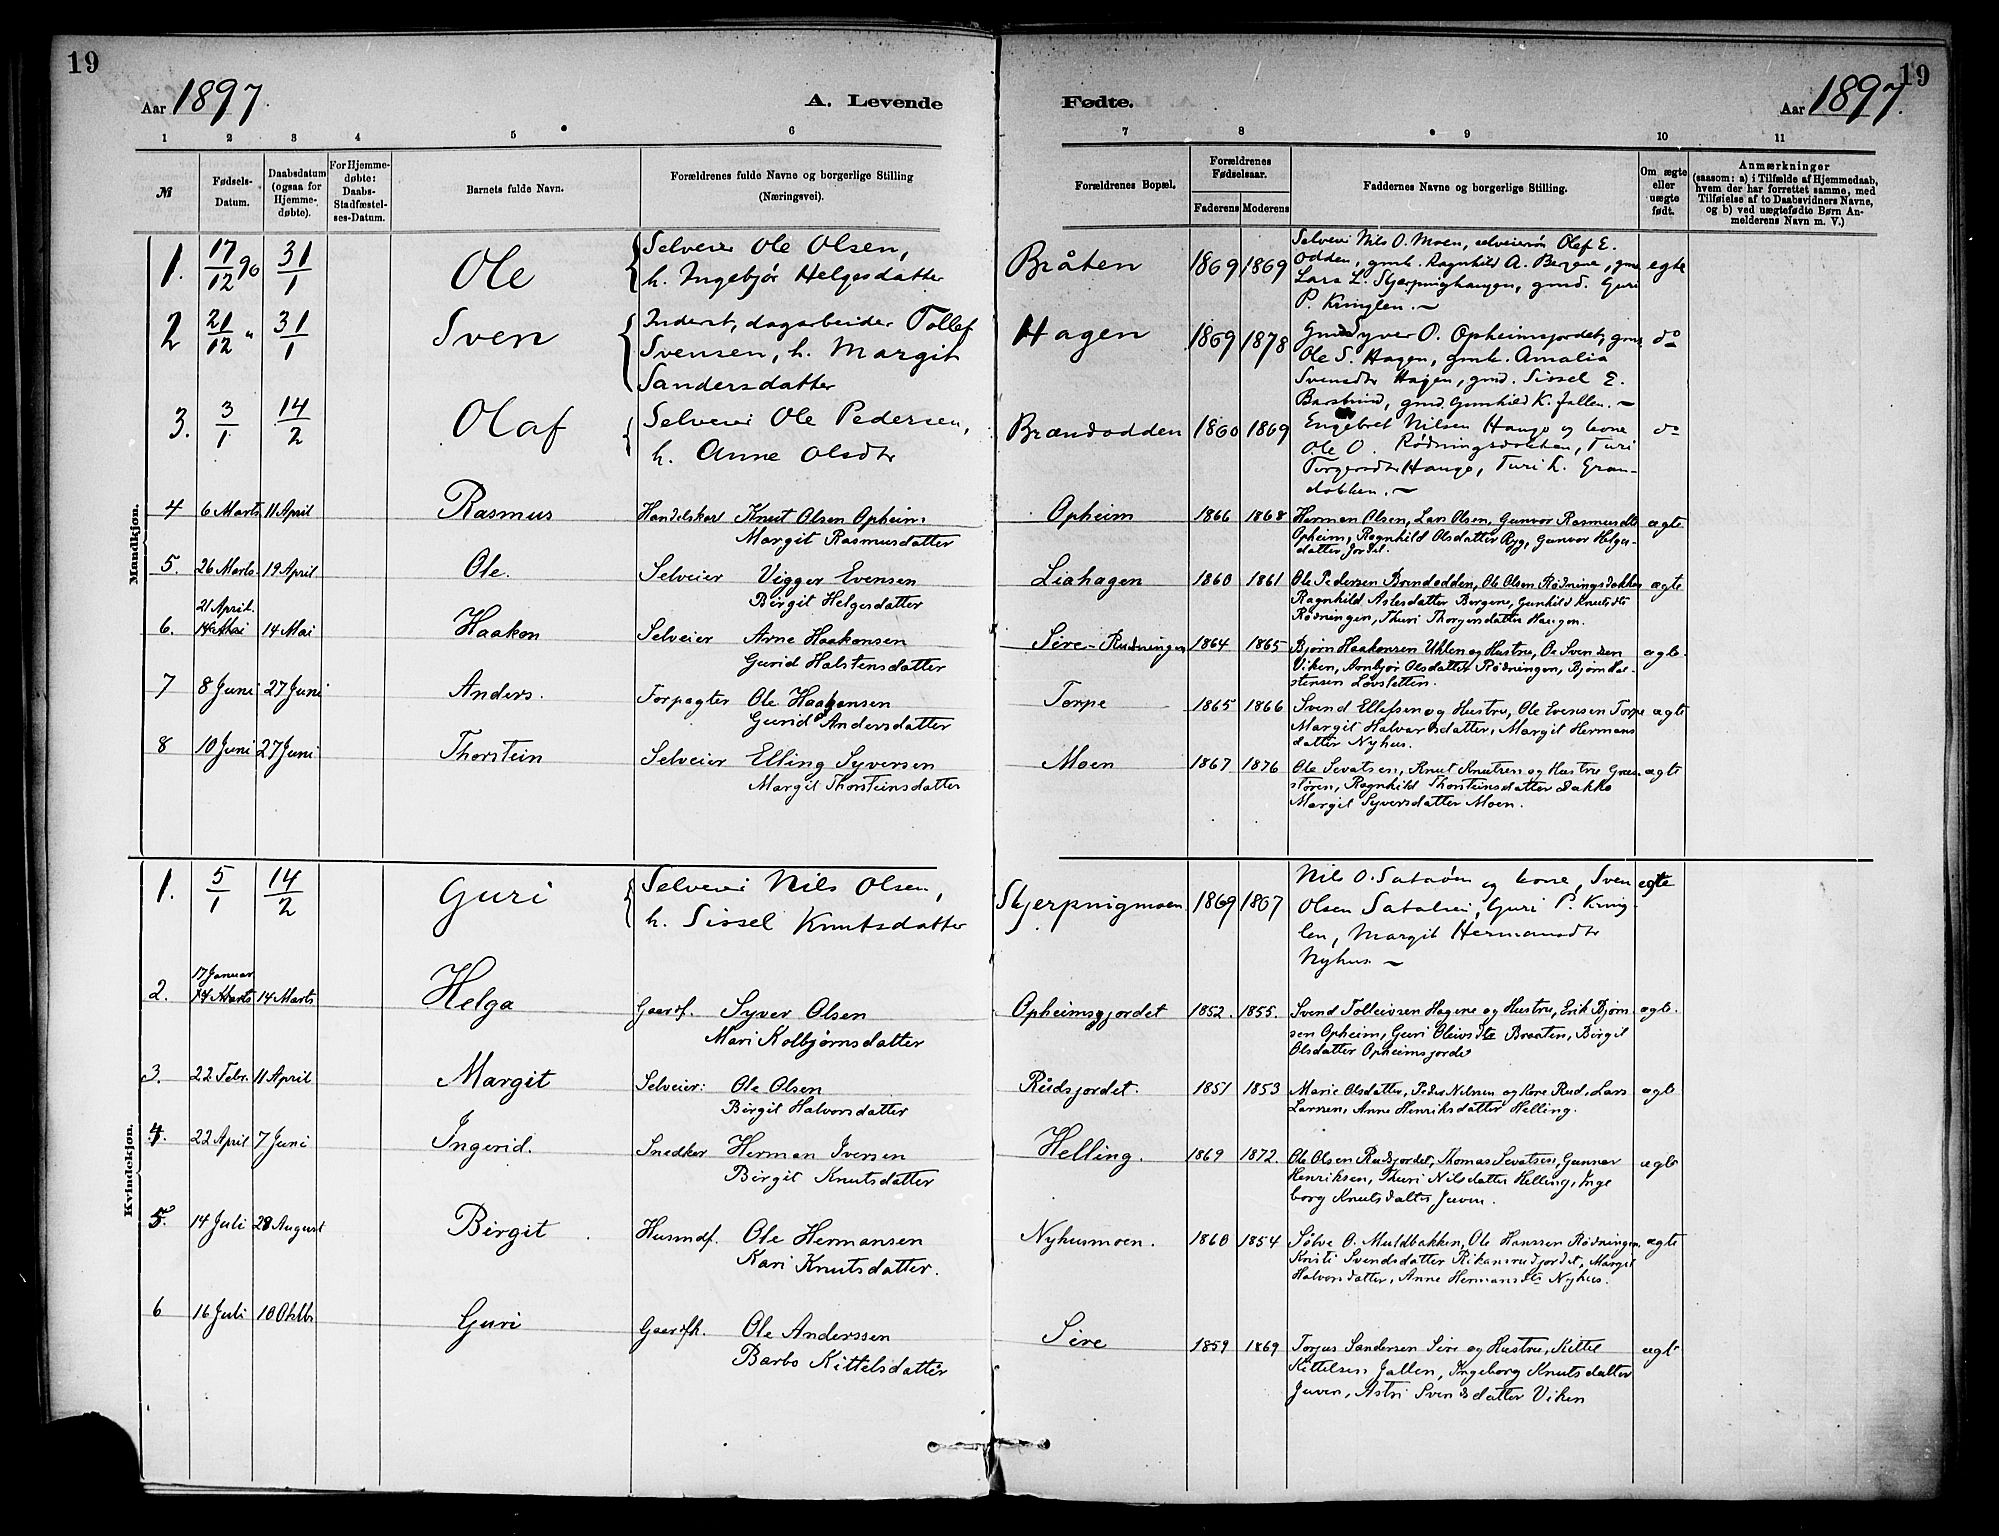 19
19
Aar 1897.
A. Levende
Fødte.
Aar 1897.
1 2 3 4 5 6 7 8 9 10 11
№
Fødsels-
Datum.
Daabsdatum
(ogsaa for
Hjemme-
døbte).
For Hjemme-
døbte:
Daabs-
Stadfæstel-
ses-Datum.
Barnets fulde Navn.
Forældrenes fulde Navne og borgerlige Stilling
(Næringsvei).
Forældrenes Bopæl.
Forældrenes
Fødselsaar.
Faderens
Moderens
Faddernes Navne og borgerlige Stilling.
Om ægte
eller
uægte
født.
Anmærkninger
(saasom: a) i Tilfælde af Hjemmedaab,
hvem der har forrettet samme, med
Tilføielse af to Daabsvidners Navne,
og b) ved uægtefødte Børn An-
melderens Navn m. V.)
Mandkjøn.
1. 17/12 96 31/1 Ole
Selveier Ole Olsen,
h. Ingebjør Helgesdatter
Bråten 1869 1869
Selveier Nils O. Moen, selveiersøn Olaf E.
Odden, gmk. Ragnhild A. Bergene, gm.
Lars L. Skjerpinghaugen, gmd. Guri
P. Kringlen. ~
egte
2 21/12 " 31/1 Sven
Inderst, dagarbeider Tollef
Svensen, h. Margit
Sandersdatter
Hagen 1869 1878
Gmd Syver O. Opheimsjordet, gm.
Ole S. Hagen, gmk. Amalia
Svensdtr Hagen, gmd. Sissel E.
gmd. Gunhild K. Jallen. ~
do
3. 3/1 14/2 Olaf
Selveier Ole Pedersen,
h. Anne Olsdtr
Brændodden 1860 1869
Engebret Nilsen Hauge og kone
Ole O. Rødningsdokken, Turi
Torgersdtr Hauge, Turi L. Gran-
dokken. ~
do
4 6 Marts 11 April Rasmus
Handelskar Knut Olsen Opheim
Margit Rasmusdatter
Opheim 1866 1868
Herman Olsen, Lars Olsen, Gunvor Rasmusdtr
Opheim, Ragnhild Olsdatter Ryg, Gunvor Helges-
datter Jordel.
ægte
5. 26 Marts 19 April Ole.
Selveier Vigger Evensen
Birgit Helgesdatter
Liahagen 1860 1861
Ole Pedersen Brendodden, Ole Olsen Rødningsdokken
Ragnhild Aslesdatter Bergene, Gunhild Knutsdtr
Rødningen, Thuri Thorgersdatter Haugen.
ægte
21 April.
6. 14 Mai 14 Mai Haakon
Selveier Arne Haakonsen
Gurid Halstensdatter
Sire-Rudningen 1864 1865
Bjørn Haakonsen Uhlen og Hustru, Ole Svensen
Viken, Aanbjør Olsdatter Rødningen, Bjørn Hal-
stensen Løvsletten.
ægte.
7 8 Juni 27 Juni Anders.
Forpagter Ole Haakonsen
Gurid Andersdatter
Torpe 1865 1866
Svend Ellefsen og Hustru, Ole Evensen Torpe
Margit Halvorsdatter, Margit Hermans
datter Nyhus.
ægte
8 10 Juni 27 Juni Thorstein
Selveier Elling Syversen
Margit Thorsteinsdatter
Moen 1867 1876
Ole Sevatsen, Knut Knutsen og Hustru
Ragnhild Thorsteinsdatter Bakke
Margit Syversdatter Moen.
ægte
Kvindekjøn.
1. 5/1 14/2 Guri
Selveier Nils Olsen,
h. Sissel Knutsdatter
Skjerpingmoen 1869 1867
Nils O. Sataøen og kone, Sven
Olsen Satalien, Guri P. Kring-
len, Margit Hermansdtr
Nyhus. ~
egte
17 Januar
2. 14 Marts 14 Marts Helga
Gaardf. Syver Olsen
Mari Kolbjørnsdatter
Opheimsgjordet 1852. 1855.
Svend Tolleivsen Hagene og Hustru, Erik Bjørn-
sen Opheim, Guri Oleivsdtr Braaten, Birgit
Olsdatter Opheimsjordet
ægte.
3. 22 Febr. 11 April Margit
Selveier: Ole Olsen
Birgit Halvorsdatter
Rudsjordet. 1851 1853
Marie Olsdatter, Peder Nilsen og Kone Rud, Lars
Larssen, Anne Henriksdatter Helling.
ægte
4. 22 April 7 Juni Ingerid.
Snedker Herman Iversen
Birgit Knutsdatter
Helling. 1869 1872.
Ole Olsen Rudsjordet, Thomas Sevatsen, Gunnar
Henriksen, Thuri Nilsdatter Helling, Inge
borg Knutsdatter Juven.
ægte
5. 14 Juli 28 August Birgit
Husmdf. Ole Hermansen
Kari Knutsdatter.
Nyhusmoen. 1860 1854
Sølve O. Muldbakken, Ole Hanssen Rødningen
Kristi Svendsdatter Rikansrudjordet, Margit
Halvorsdatter, Anne Hermansdtr Nyhus.
ægte
6 16 Juli 10 Oktbr Guri
Gaardfh. Ole Anderssen
Barbo Kittelsdatter
Sire 1859 1869
Torjus Sandersen Sire og Hustru, Kittel
Kittelsen Jallen, Ingeborg Knutsdatter
Juven, Astri Svensdatter Viken
ægte